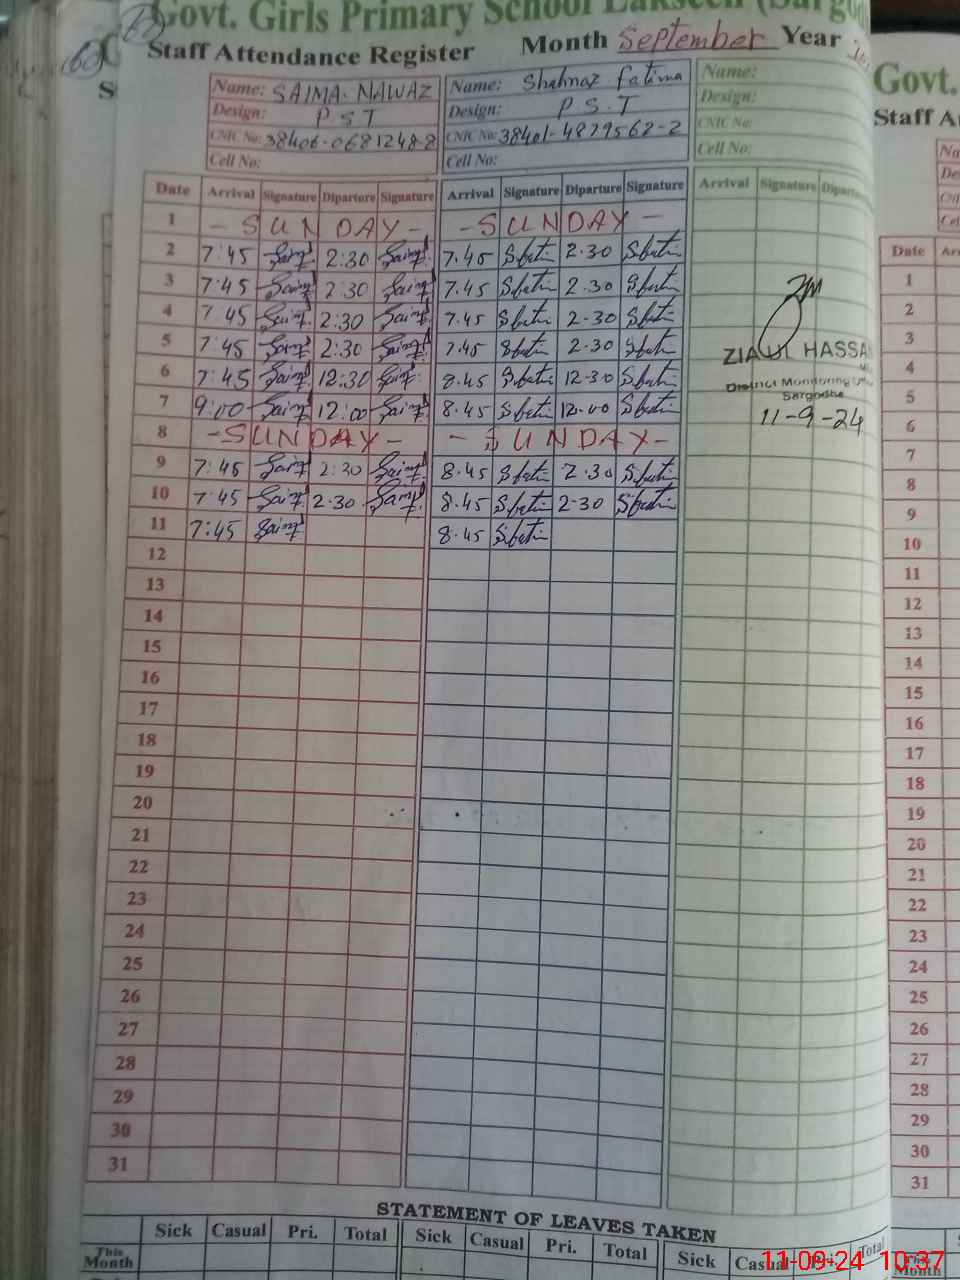 Govt. Girls Primary School Lakseen (Sargod
Staff Attendance Register Month September Year
Name: SAIMA NAWAZ Name: Shahnaz Fatima Name:
Design: P S T Design: P S T Design:
CNIC No: 38406-0681248-8 CNIC No: 38401-4829562-2 CNIC No:
Cell No: Cell No: Cell No:
Date Arrival Signature Diparture Signature Arrival Signature Diparture Signature Arrival Signature Dipartu
1 - SUNDAY - - SUNDAY -
2 7:45 Saima 2:30 Saima 7.45 Sfati 2.30 Sfati
3 7:45 Saima 2:30 Saima 7.45 Sfati 2.30 Sfati
4 7 45 Saima 2:30 Saima 7.45 Sfati 2-30 Sfati
5 7:45 Saima 2:30 Saima 7.45 Sfati 2.30 Sfati
6 7:45 Saima 12:30 Saima 8.45 Sfati 12-30 Sfati
7 9:00 Saima 12:00 Saima 8.45 Sfati 12.00 Sfati
8 - SUNDAY - - SUNDAY -
9 7:45 Saima 2:30 Saima 8.45 Sfati 2.30 Sfati
10 7:45 Saima 2.30 Saima 8.45 Sfati 2.30 Sfati
11 7:45 Saima 8.45 Sfati
12
13
14
15
16
17
18
19
20
21
22
23
24
25
26
27
28
29
30
31
ZIA UL HASSAN
District Monitoring
Sargodha
11-9-24
STATEMENT OF LEAVES TAKEN
Sick Casual Pri. Total Sick Casual Pri. Total Sick Casual Pri. Total
This Month
Govt.
Staff A
Date
1
2
3
4
5
6
7
8
9
10
11
12
13
14
15
16
17
18
19
20
21
22
23
24
25
26
27
28
29
30
31
Month
11-09-24 10:37